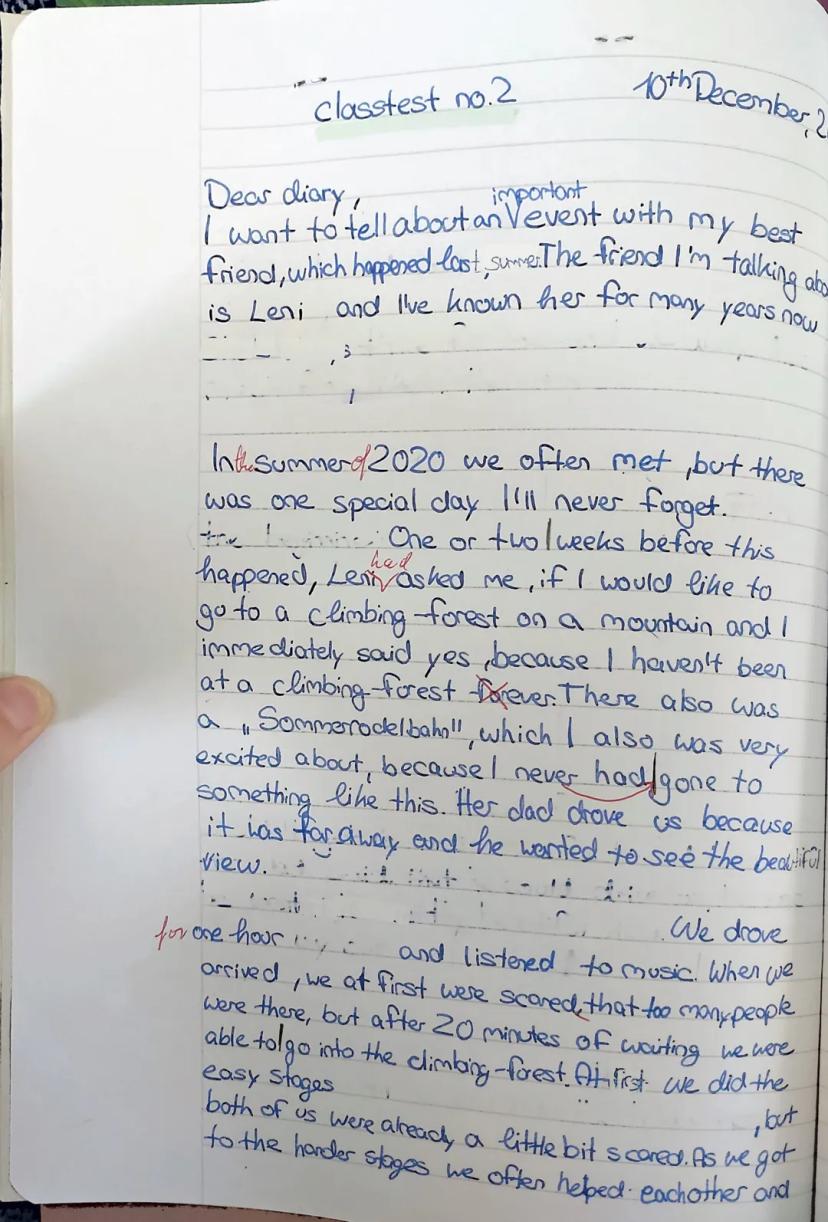 classtest no.2
10th December, 2
Dear diary,
important
I want to tell about an V event with my best
friend, which happened last summer. The friend I'm talking abo
is Leni and I've known her for many years now
In the summer of 2020 we often met, but there
was one special day I'll never forget.
One or two weeks before this
had
happened, Leni asked me, if I would like to
go to a climbing-forest on a mountain and I
immediately said yes, because I haven't been
at a climbing-forest ever. There also was
a „Sommerrodelbahn", which I also was very
excited about, because I never had gone to
something like this. Her dad drove us because
it was far away and he wanted to see the beautiful
view.
We drove
for one hour and listened to music. When we
arrived, we at first were scared, that too many people
were there, but after 20 minutes of waiting we were
able to go into the climbing-forest. At first we did the
easy stages
, but
both of us were already a little bit scared. As we got
to the harder stages we often helped eachother and